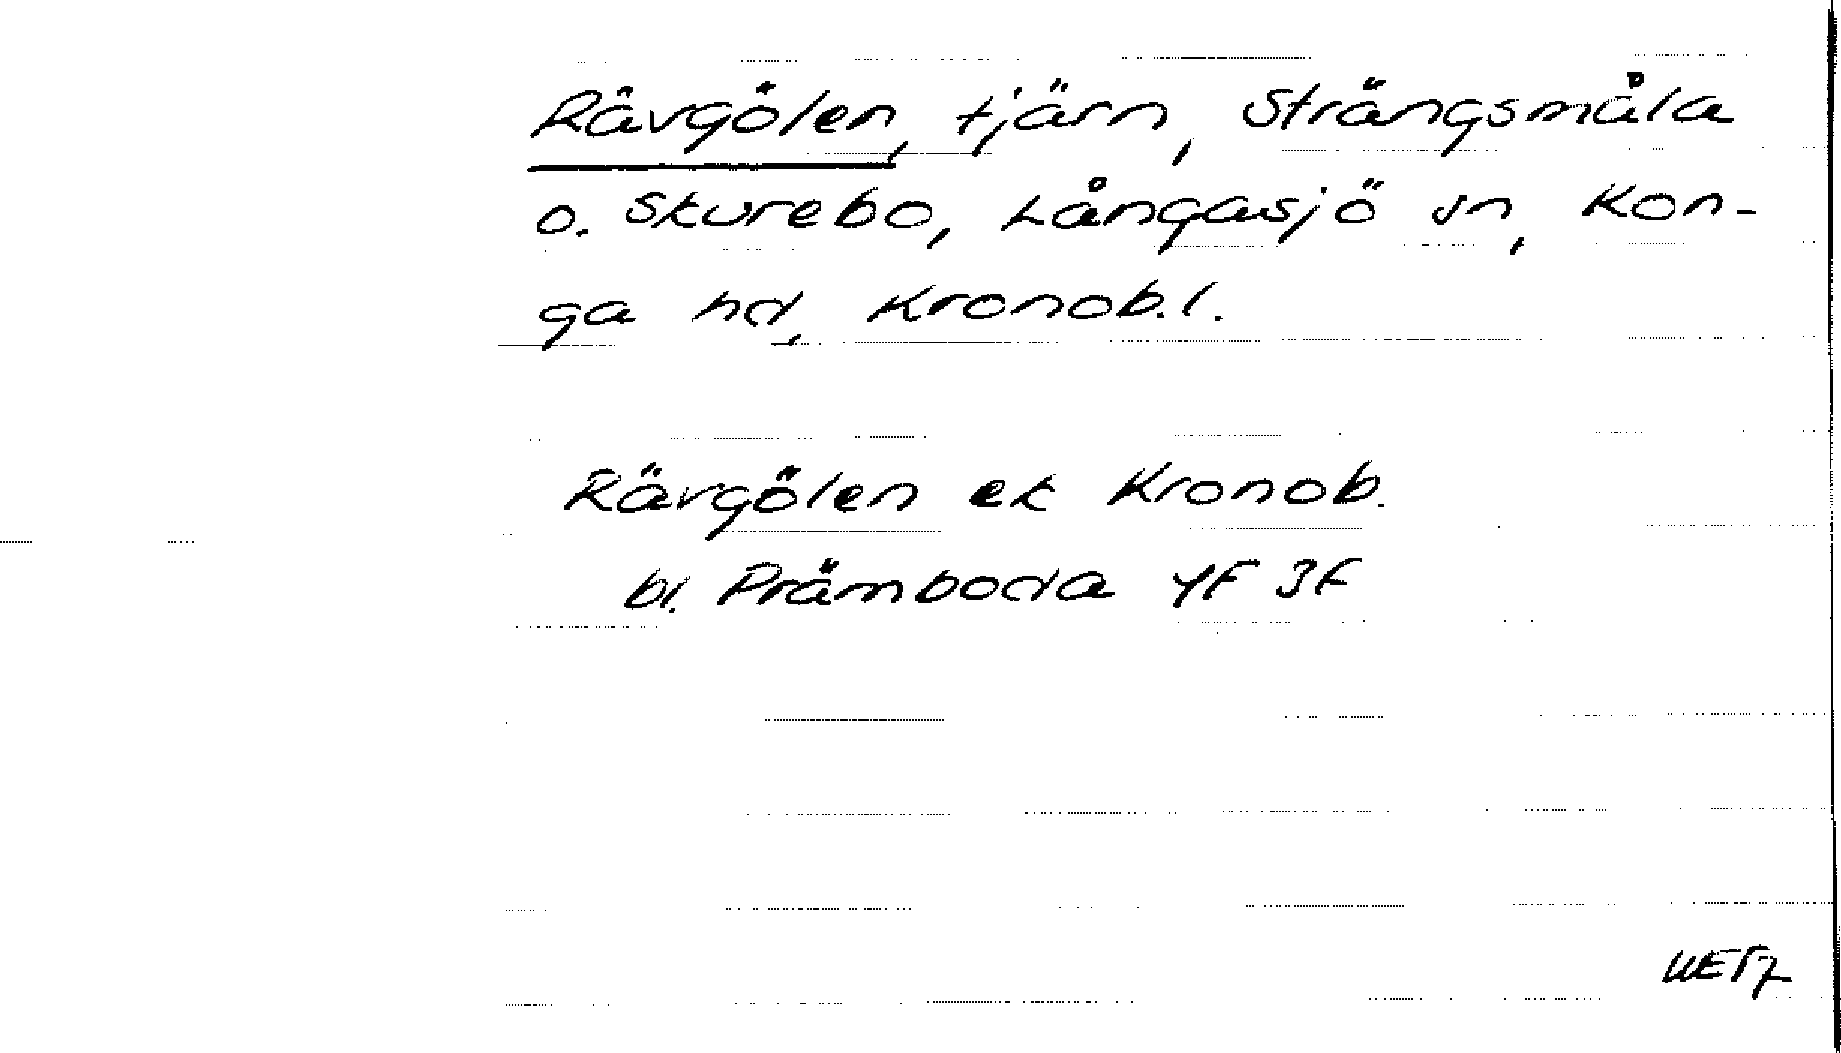 Rävgölen, tjärn, Strängsmåla
o. Skurebo, Långasjö sn, Kon-
ga hd, Kronob.l.
Rävgölen ek Kronob.
bl. Prämboda 4F 3f
WETZ